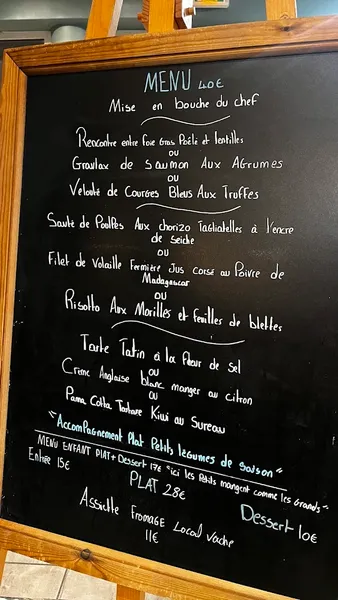 MENU 40€
Mise en bouche du chef
Rencontre entre Foie Gras Poêlé et lentilles
ou
Gravlax de Saumon Aux Agrumes
ou
Velouté de Courges Bleus Aux Truffes
Sauté de Poulpes Aux chorizo Tagliatelles à l'encre
de seiche
ou
Filet de Volaille Fermière Jus corsé au Poivre de
Madagascar
ou
Risotto Aux Morilles et feuilles de blettes
Tarte Tatin à la fleur de sel
ou
Crème Anglaise blanc manger au citron
ou
Pana Cotta Tartare Kiwi au Sureau
"Accompagnement Plat Petits légumes de saison"
MENU ENFANT Plat + Dessert 17€ "ici les Petits mangent comme les Grands"
Entrée 15€
PLAT 28€
Dessert 10€
Assiette Fromage Local vache
11€